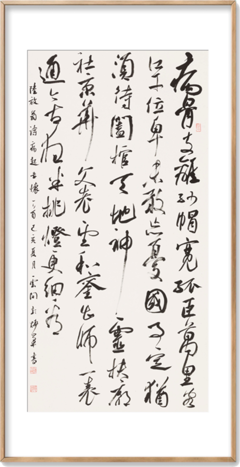 病骨支離紗帽寬孤臣萬里客
江干位卑未敢忘憂國事定猶
須待闔棺天地神靈扶廟
社京華父老望和鑾出師一表
通今古夜半挑燈更細看
陸放翁詩病起書懷一首己亥夏月